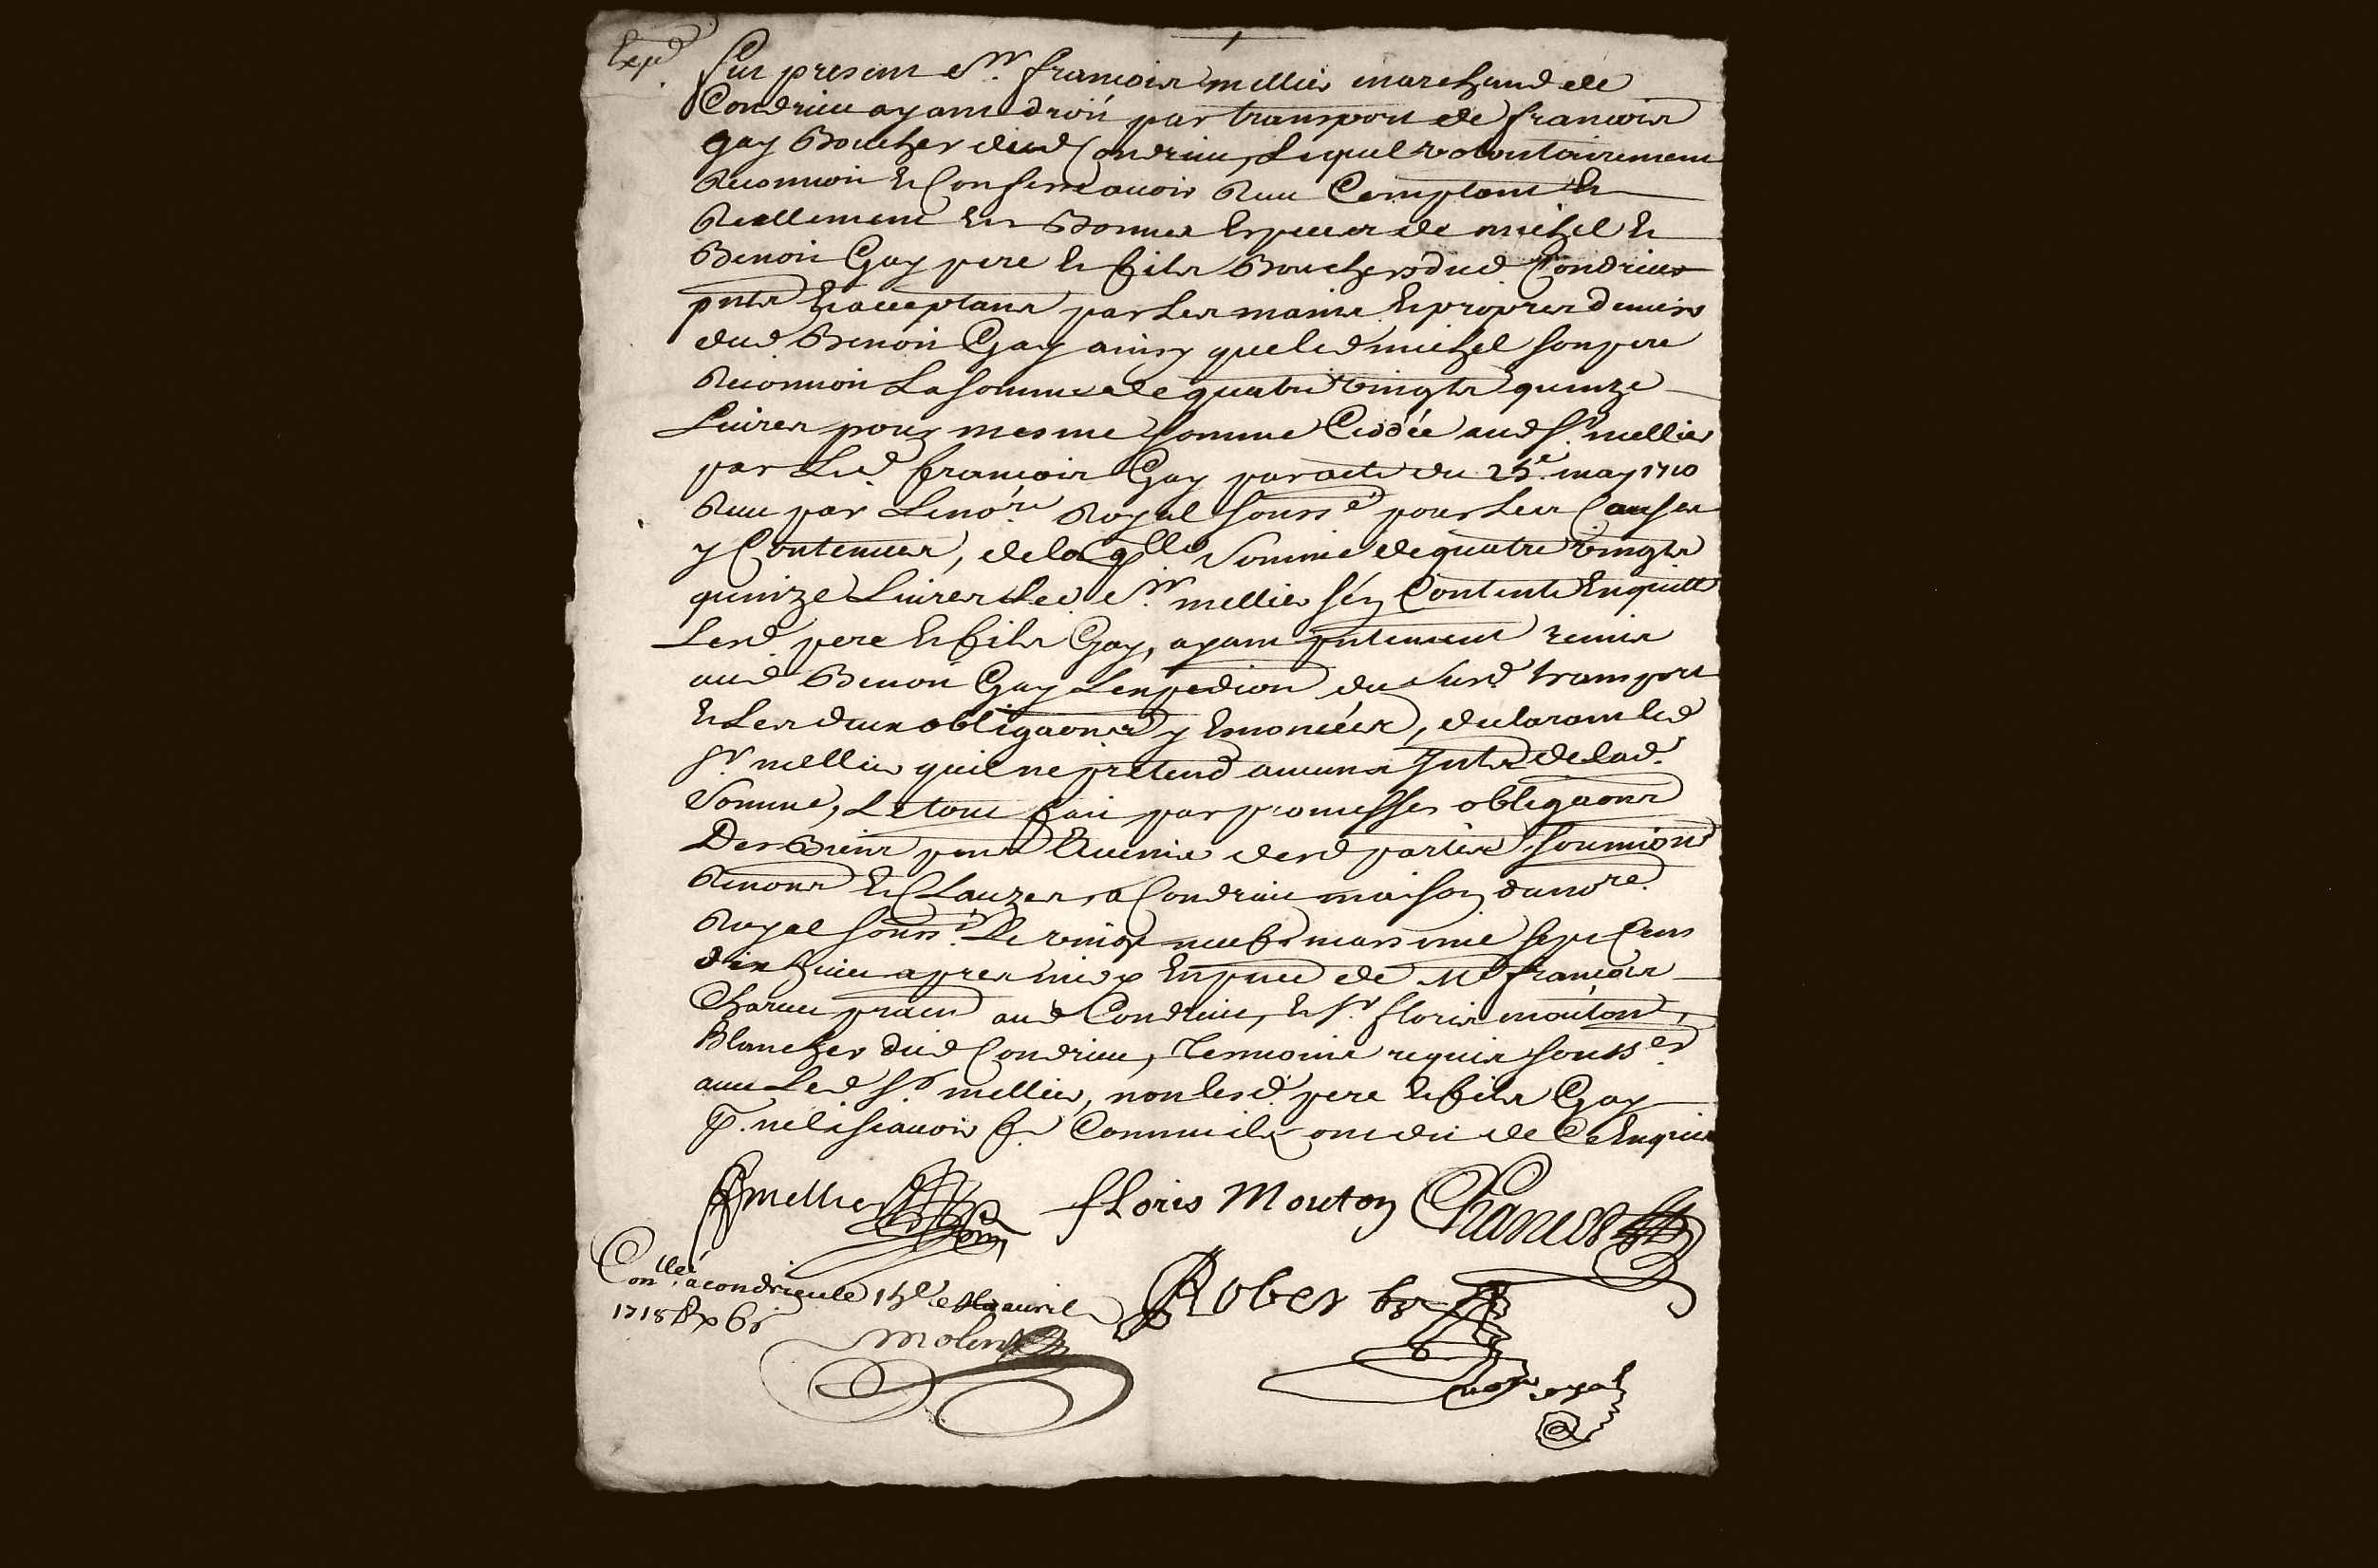 Exp.d
Fut present Sr. francois mellier marchand de
Condrieu ayant droit par transport de francois
gay Boucher dud Condrieu, Lequel volontairement
Reconnoit et Confesse avoir Receu Comptant et
Reellement en Bonnes Especes de michel et
Benoit Gay pere et fils Bouchers dud Condrieu
pnts et acceptans par les mains et propres deniers
dud Benoit Gay ainsy que led michel son pere
Reconnoit La somme de quatre vingts quinze
Livres pour mesme somme Ceddée aud Sr. mellier
par Led. francois Gay par acte du 25e. may 1710
Receu par Le nore. Royal Soussé. pour Les Causes
y Contenues, de laqlle Somme de quatre vingts
quinze Livres led. Sr. mellier s'en Contente En quitte
Lesd. pere et fils Gay, ayant pntement remis
aud Benoit Gay Lexpedion du susd. transport
et Les deux obligaons y Enoncées, declarant led
Sr. mellier quil ne pretend aucuns Intts de lad.
Somme, Le tout fait par promesses obligaons
Des Biens pnts et avenir desd parties Soumions
Renons et Clauzes, a Condrieu maison du nore.
Royal Soussé. Le vingt neuf mars mil sept Cens
dix huit apres midy En pnce de Me francois
Charvet praen aud Condrieu, et Sr. floris mouton,
Blancher dud Condrieu, Temoins requis Soussés.
avec Led. Sr. mellier, non lesd. pere et fils Gay
p. ne le scavoir f. Comme ils ont dit de Ce Enquis
F mellier floris Mouton Charvet
Conllé. a condrieu le 15e avril
1718
Robert
molin
nore royal